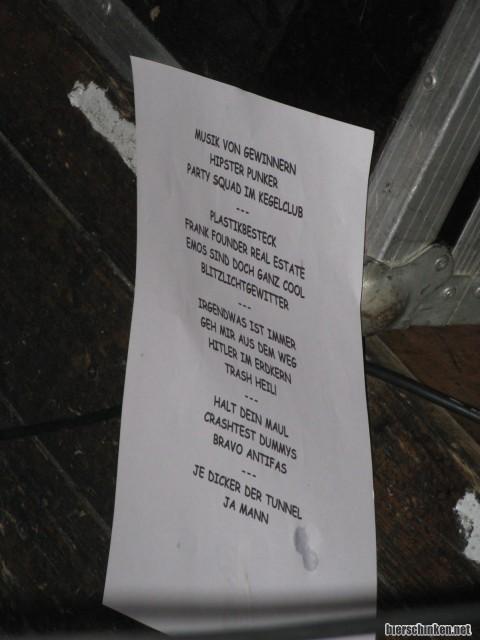 MUSIK VON GEWINNERN
HIPSTER PUNKER
PARTY SQUAD IM KEGELCLUB
---
PLASTIKBESTECK
FRANK FOUNDER REAL ESTATE
EMOS SIND DOCH GANZ COOL
BLITZLICHTGEWITTER
---
IRGENDWAS IST IMMER
GEH MIR AUS DEM WEG
HITLER IM ERDKERN
TRASH HEIL!
---
HALT DEIN MAUL
CRASHTEST DUMMYS
BRAVO ANTIFAS
---
JE DICKER DER TUNNEL
JA MANN
bierschinken.net